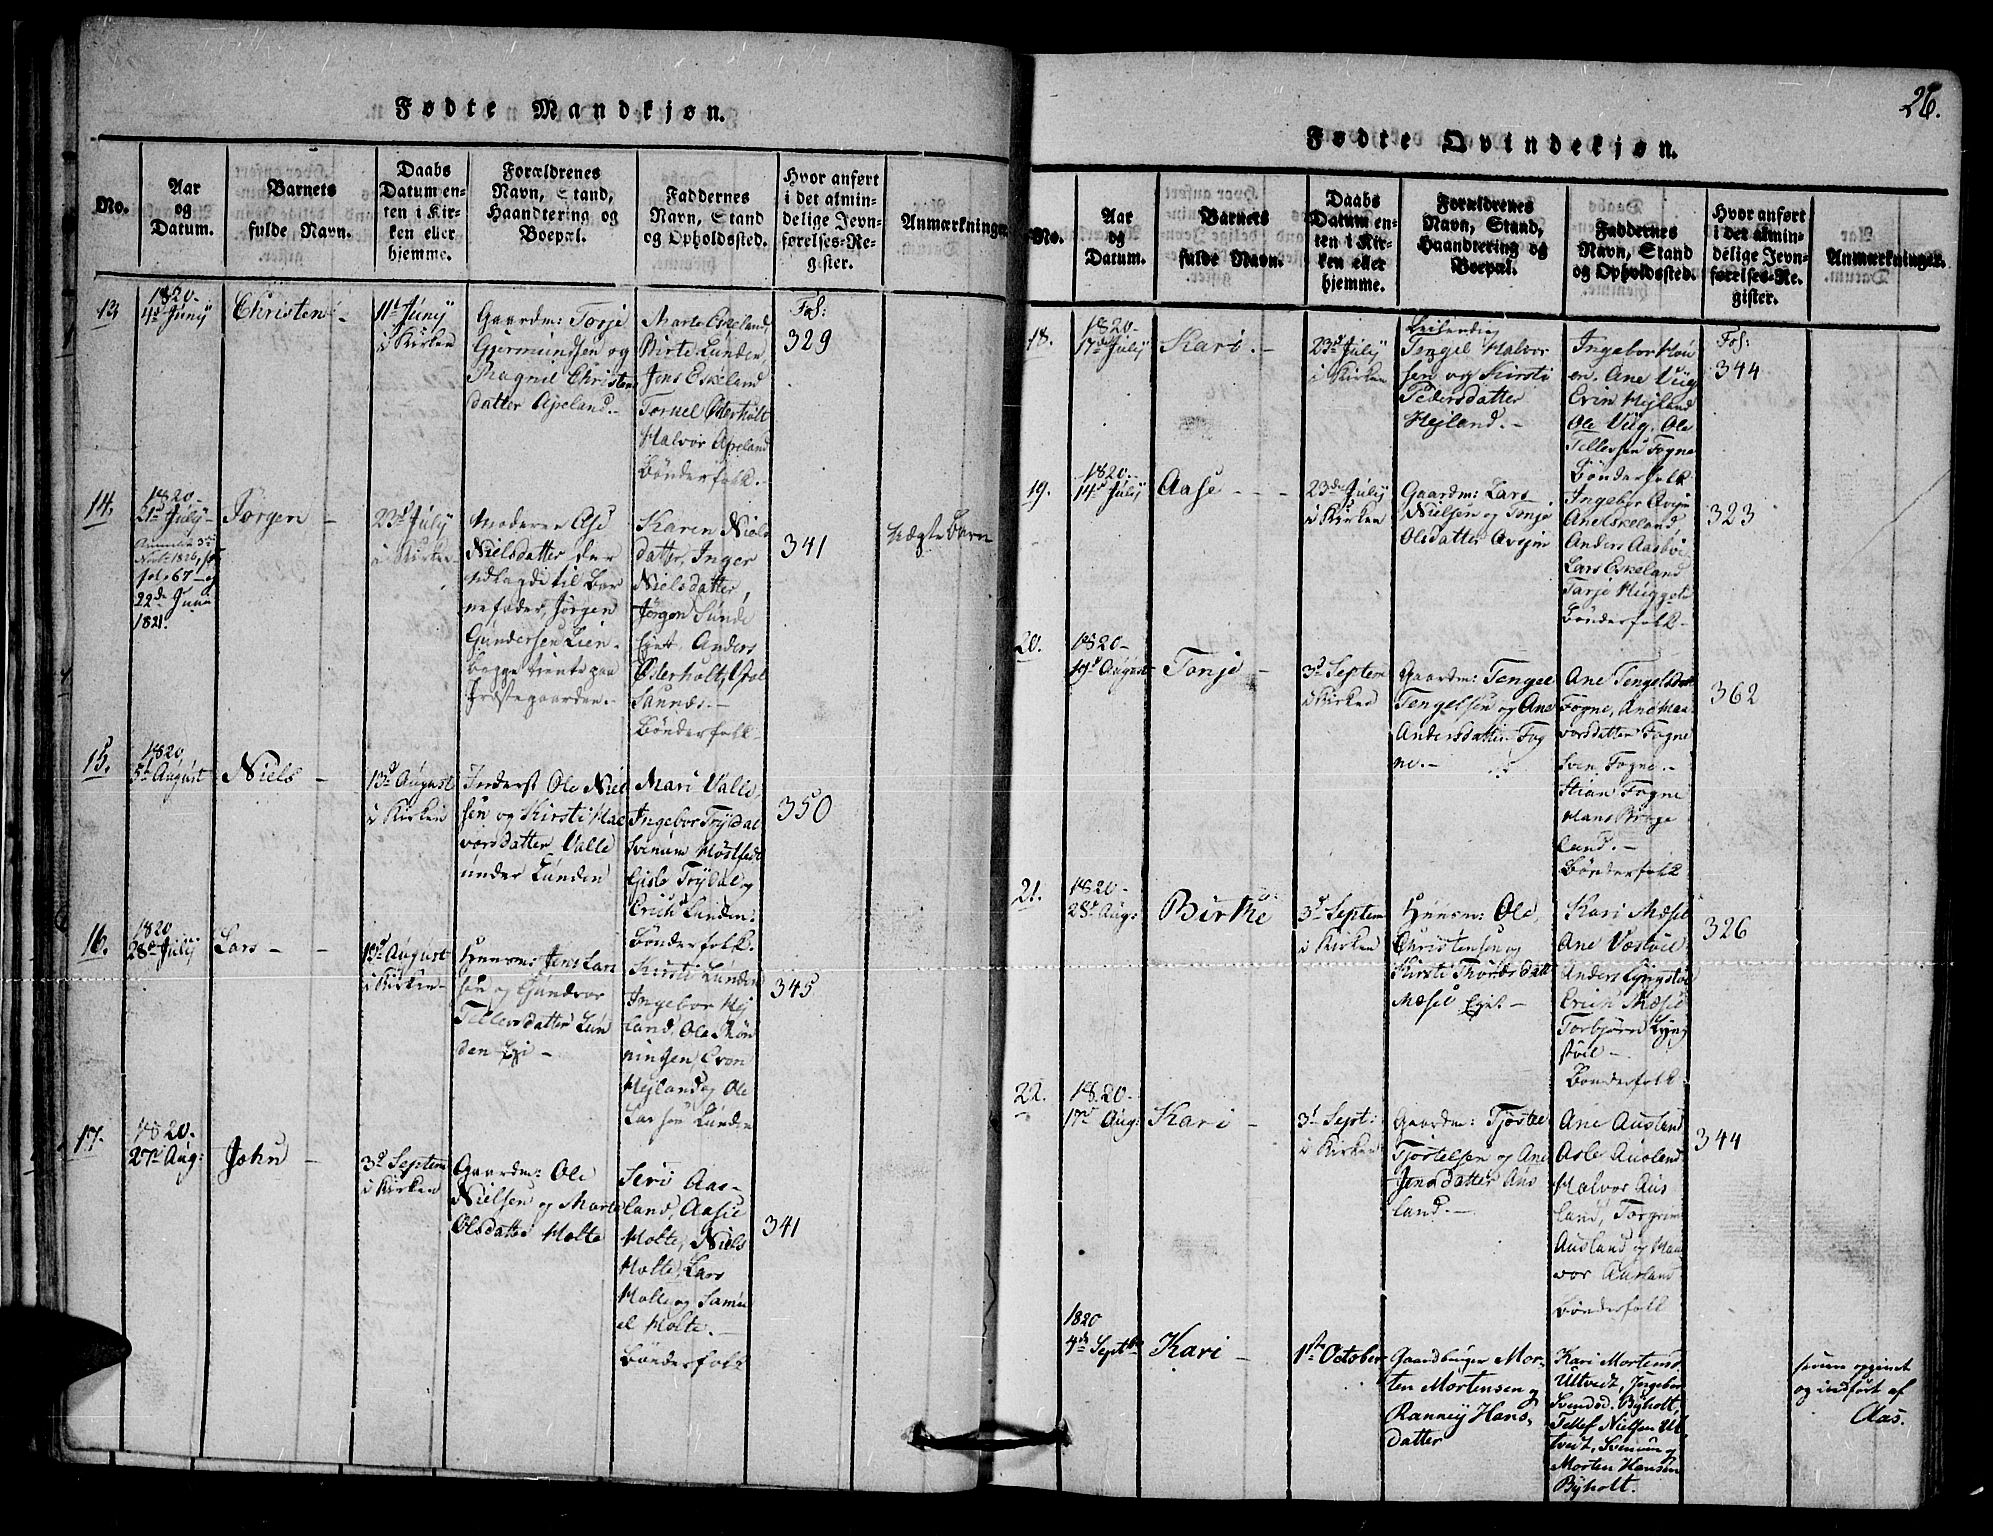 Fødte Mandkjøn.
No.
Aar
og
Datum.
Barnets
fulde Navn.
Daabs
Datum en-
ten i Kir-
ken eller
hjemme.
Forældrenes
Navn, Stand,
Haandtering og
Boepæl.
Faddernes
Navn, Stand
og Opholdssted.
Hvor anført
i det almin-
delige Jevn-
førelses-Re-
gister.
Anmærkninger
13.
1820-
Juny
Christen -
11t Juny
i Kirken
Gaardm: Torje
Gjermundsen og
Ragnil Christen
datter Apeland.-
Marte Eskeland,
Birte Lunden
Jens Eskeland
Torkel Østerholt
Halvor Apeland
Bønderfolk.
Fol:
329
14.
1820-
21d July-
fol: 67-
22de Juni
1821.
Jørgen -
23d July
i Kirken
Moderen Ase
Nielsdatter der
udlagde til Bar
nefader, Jørgen
Gundersen Lien-
begge tiente paa
Præstegaarden.-
Karen Niels
datter, Inger
Nielsdatter,
Jørgen Sunde
Ejet, Anders
Østerholt,
Sannæs.-
Bønderfolk-
341
Uægte Barn
15.
1820
5t August
Niels -
13d August
i Kirken
Inderst Ole Niel
sen og Kirsti Hal
vorsdatter Valle
under Lunden
Mari Valle,
Ingebor Trydal
Svenum Møstfedt
Gisle Trydal og
Erich Lunden:
Bønderfolk.
350
16.
1820
28de July
Lars - -
13d August
i Kirken-
Huusm: Jens Lar
sen og Gundvor
Tellevsdatter Lun
den Eje -
Kirsti Lunden
Ingebor Hej
land, Ole Røn
ningen, Even
Hejland og Ole
Larsen Lunden
345
17.
1820.
27de Aug:
John -
3d Septem
i Kirken
Gaardm: Ole
Nielsen og Marte
Olsdatter Holte
Siri Aas-
land, Aasie
Holte, Niels
Holte, Lars
Holte og Samu
el Holte.-
Bønderfolk
341
26.
Fødte Qvindekjøn.
No.
Aar
og
Datum.
Barnets
fulde Navn.
Daabs
Datum en-
ten i Kir-
ken eller
hjemme.
Forældrenes
Navn, Stand,
Haandtering og
Boepæl.
Faddernes
Navn, Stand
og Opholdssted.
Hvor anført
i det almin-
delige Jevn-
førelses-Re-
gister.
Anmærkninger.
18.
1820-
17de July
Kari. -
23d July
i Kirken
Leilending
Tengel Halvor
sen og Kirsti
Pedersdatter
Hejland. -
Ingebor Mou
en. Ane Vüg
Even Hejland
Ole Vüg, Ole
Tellefsen Fogne
Bønderfolk
Fol:
344
19.
1820-
14d July
Aase - - -
23de July
i Kirken
Gaardm: Lars
Nielsen og Tonje
Olsdatter Avsjen
Ingebor Avsjen
Ane Eskeland
Anders Aasbøe
Lars Eskeland
Tarje
Bønderfolk-
323
20.
1820-
19d August
Tonje -
3d Septem
i Kirken
Gaardm: Tengel
Tengelsen og Ane
Andersdatter Fog
ne.-
Ane Tengelsdatt
Fogne, Ane Hal
vorsdatter Fogne
Sven Fogne.-
Stian Fogne
Hans Brage
land.-
Bønderfolk
362
21.
1820-
28d Aug:
Birthe
3d Septem
i Kirken
Huusm: Ole
Christensen og
Kirsti Thordsdatt
Mæsel Ejet -
Kari Mæsel
Ane Væstøl
Anders Lyngstøl
Erich Mæsel
Torbjørn Lyng
støel-
Bønderfolk:
326
22.
1820-
17de Aug:
Kari -
3d Sept:
i Kirken
Gaardm: Tjøstel
Tjøstelsen og Ane
Jensdatter Aus
land.-
Ane Ausland
Asle Ausland
Halvor Aus
land, Torgrim
Ausland og Hal
vor Ausland
Bønderfolk
344
1820
4de Septbr
Kari -
1ste October
Gaardbruger Mor-
ten Mortensen og
Ranney Hans-
datter
Kari Mortensd.
Ultvedt, Ingebor
Svendsd. Byholt,
Tellef Nielsen Ul-
tvedt, Svenum og
Morten Hansen
Byholt.
opgivet
og indført af
Aas.